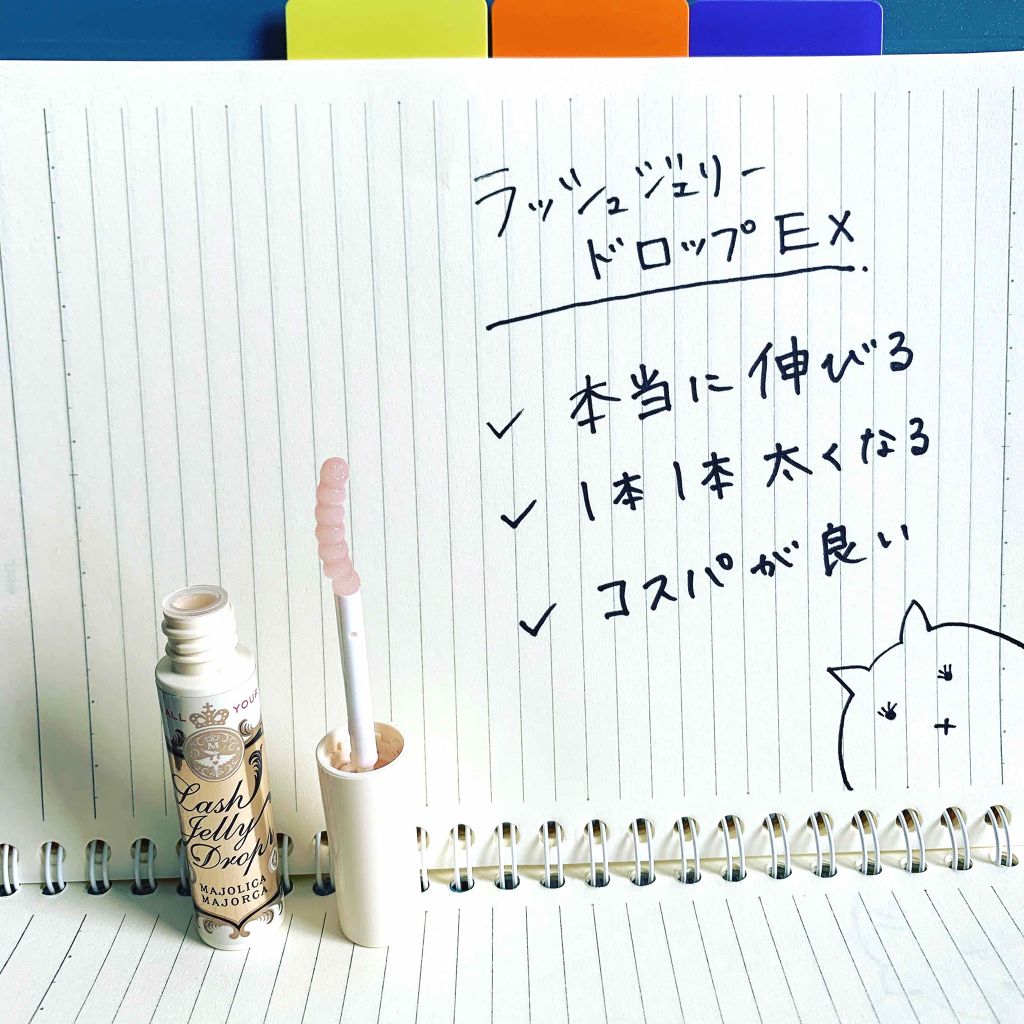 ラッシュジェリー
ドロップEX
本当に伸びる
1本1本太くなる
コスパが良い
ALL YOUR
M
Lash
Jelly
Drop
MAJOLICA
MAJORCA